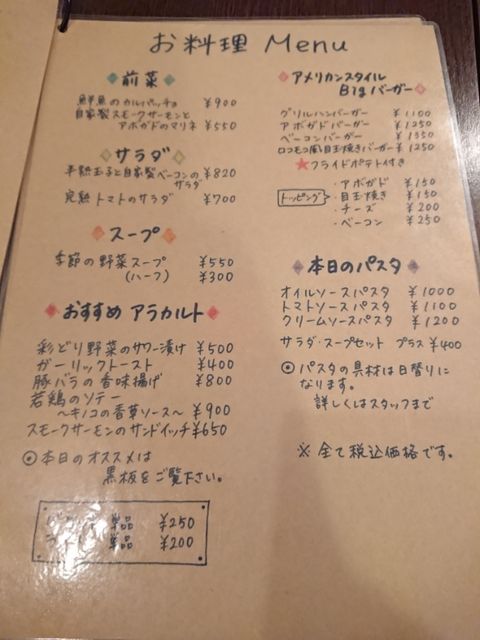 お料理 Menu
前菜
鮮魚のカルパッチョ ¥900
自家製スモークサーモンと
アボガドのマリネ ¥550
サラダ
半熟玉子と自家製ベーコンの
サラダ ¥820
完熟トマトのサラダ ¥700
スープ
季節の野菜スープ ¥550
(ハーフ) ¥300
おすすめ アラカルト
彩どり野菜のサワー漬け ¥500
ガーリックトースト ¥400
豚バラの香味揚げ ¥800
若鶏のソテー
〜キノコの香草ソース〜 ¥900
スモークサーモンのサンドイッチ ¥650
◎本日のオススメは
黒板をご覧下さい。
単品 ¥250
単品 ¥200
アメリカンスタイル
Bigバーガー
グリルハンバーガー ¥1100
アボガドバーガー ¥1250
ベーコンバーガー ¥1350
ロコモコ風目玉焼きバーガー ¥1250
★フライドポテト付き
トッピング
・アボガド ¥150
・目玉焼き ¥150
・チーズ ¥200
・ベーコン ¥250
本日のパスタ
オイルソースパスタ ¥1000
トマトソースパスタ ¥1100
クリームソースパスタ ¥1200
サラダ・スープセット プラス ¥400
◎パスタの具材は日替りに
なります。
詳しくはスタッフまで
※全て税込価格です。